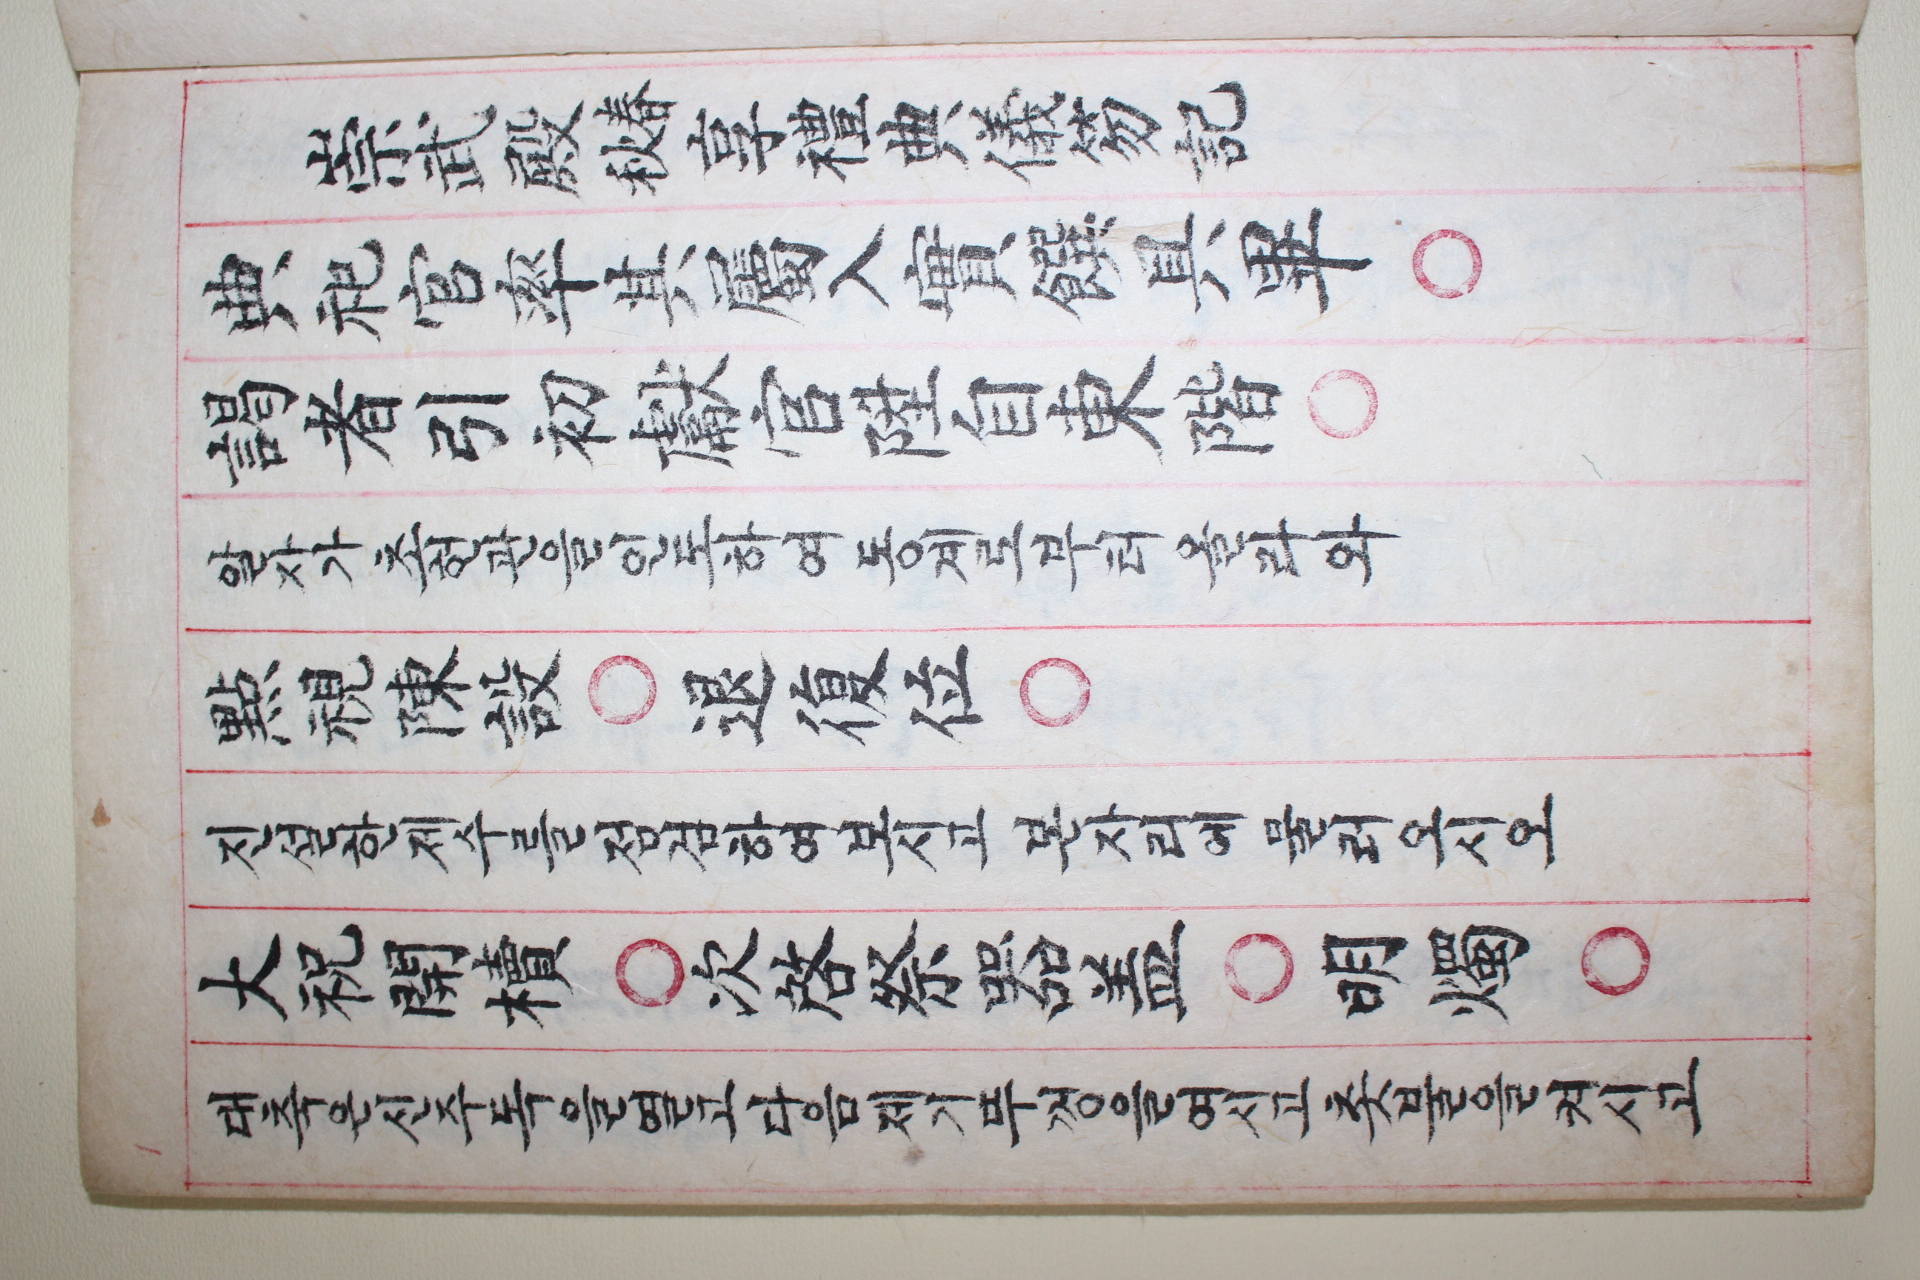 崇武殿春秋享禮典儀笏記
典祀官率其屬入實饌具畢 ○
謁者引初獻官陞自東階 ○
알자가 초헌관을 인도하여 동계로부터 올라와
點視陳設 ○ 退復位 ○
진설한 제수를 점검하여 보시고 본자리에 물러 오시오
大祝開櫝 ○ 次啓祭器蓋 ○ 明燭 ○
대축은 신주독을 열고 다음 제기 뚜껑을 여시고 촛불을 켜시고